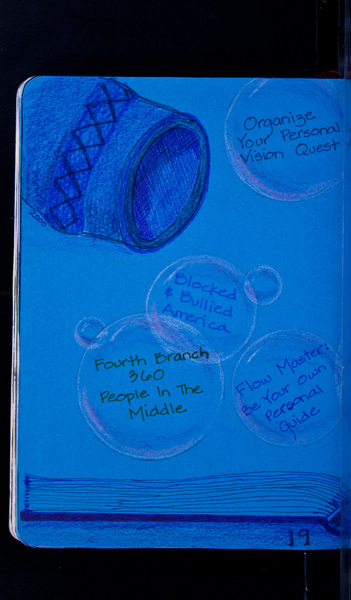 Organize
Your Personal
Vision Quest
Blocked
& Bullied
America
Fourth Branch
360
People In The
Middle
Flow Master:
Be Your Own
Personal
Guide
19